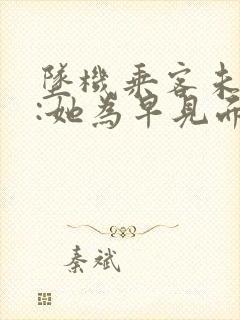 墜機乘客未
:她為早見而
秦斌